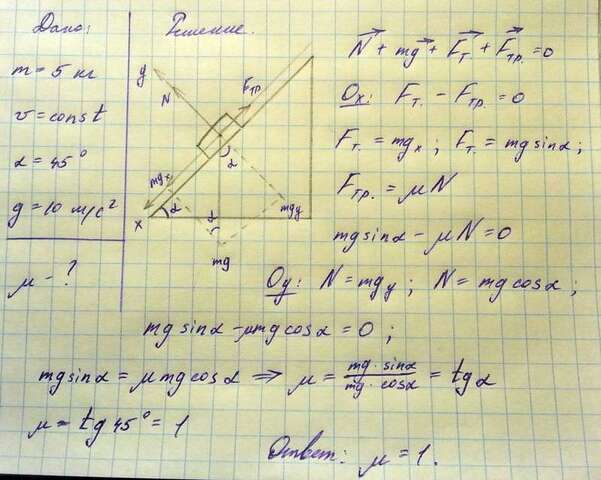 Дано:
m = 5 кг
v = const
α = 45°
g = 10 м/с²
μ - ?
Решение.
y
N
Fтр.
α
mgx
x
α
α
mgy
mg
N + mg + Fт. + Fтр. = 0
Ox: Fт. - Fтр. = 0
Fт. = mgx ; Fт. = mg sinα ;
Fтр. = μN
mg sinα - μN = 0
Oy: N = mgy ; N = mg cosα ;
mg sinα - μmg cosα = 0 ;
mg sinα = μ mg cosα => μ = mg· sinα / mg· cosα = tg α
μ = tg 45° = 1
Ответ: μ = 1.